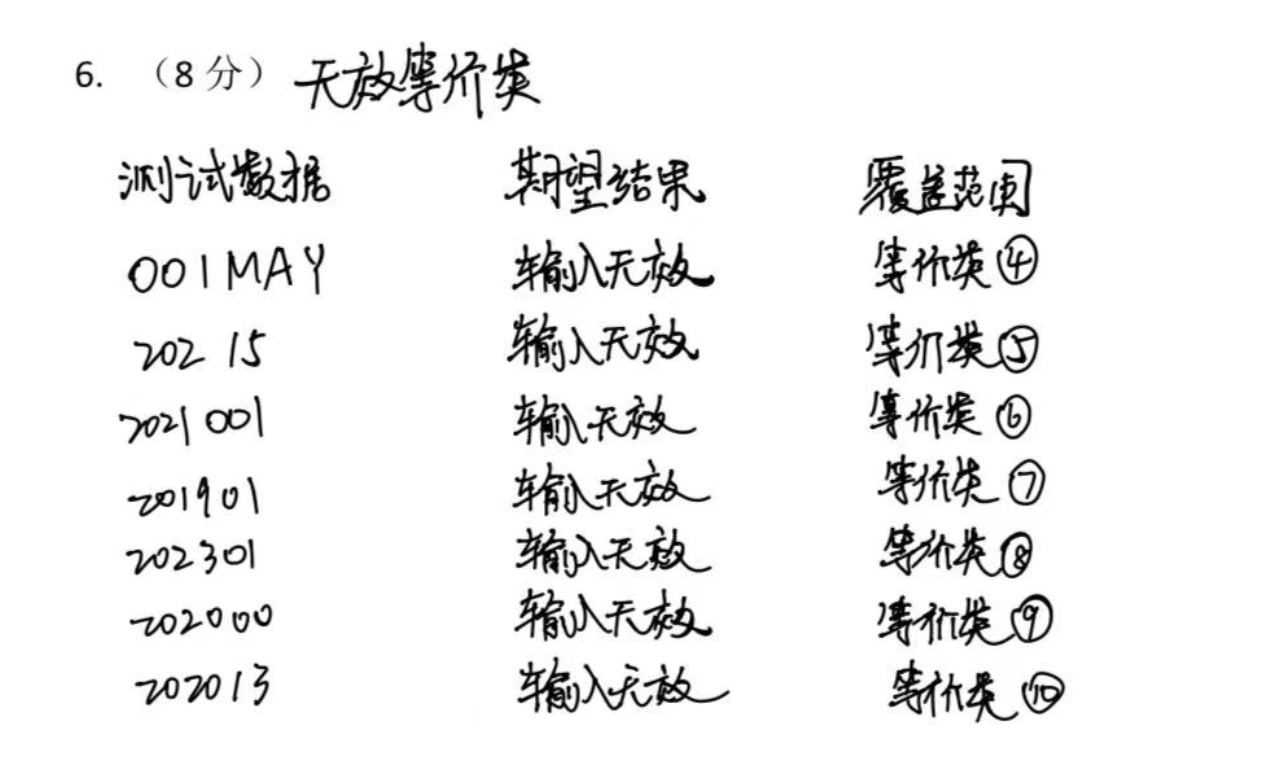 6. （8 分） 无效等价类
测试数据 期望结果 覆盖范围
001MAY 输入无效 等价类④
20215 输入无效 等价类⑤
2021001 输入无效 等价类⑥
201901 输入无效 等价类⑦
202301 输入无效 等价类⑧
202000 输入无效 等价类⑨
202013 输入无效 等价类⑩